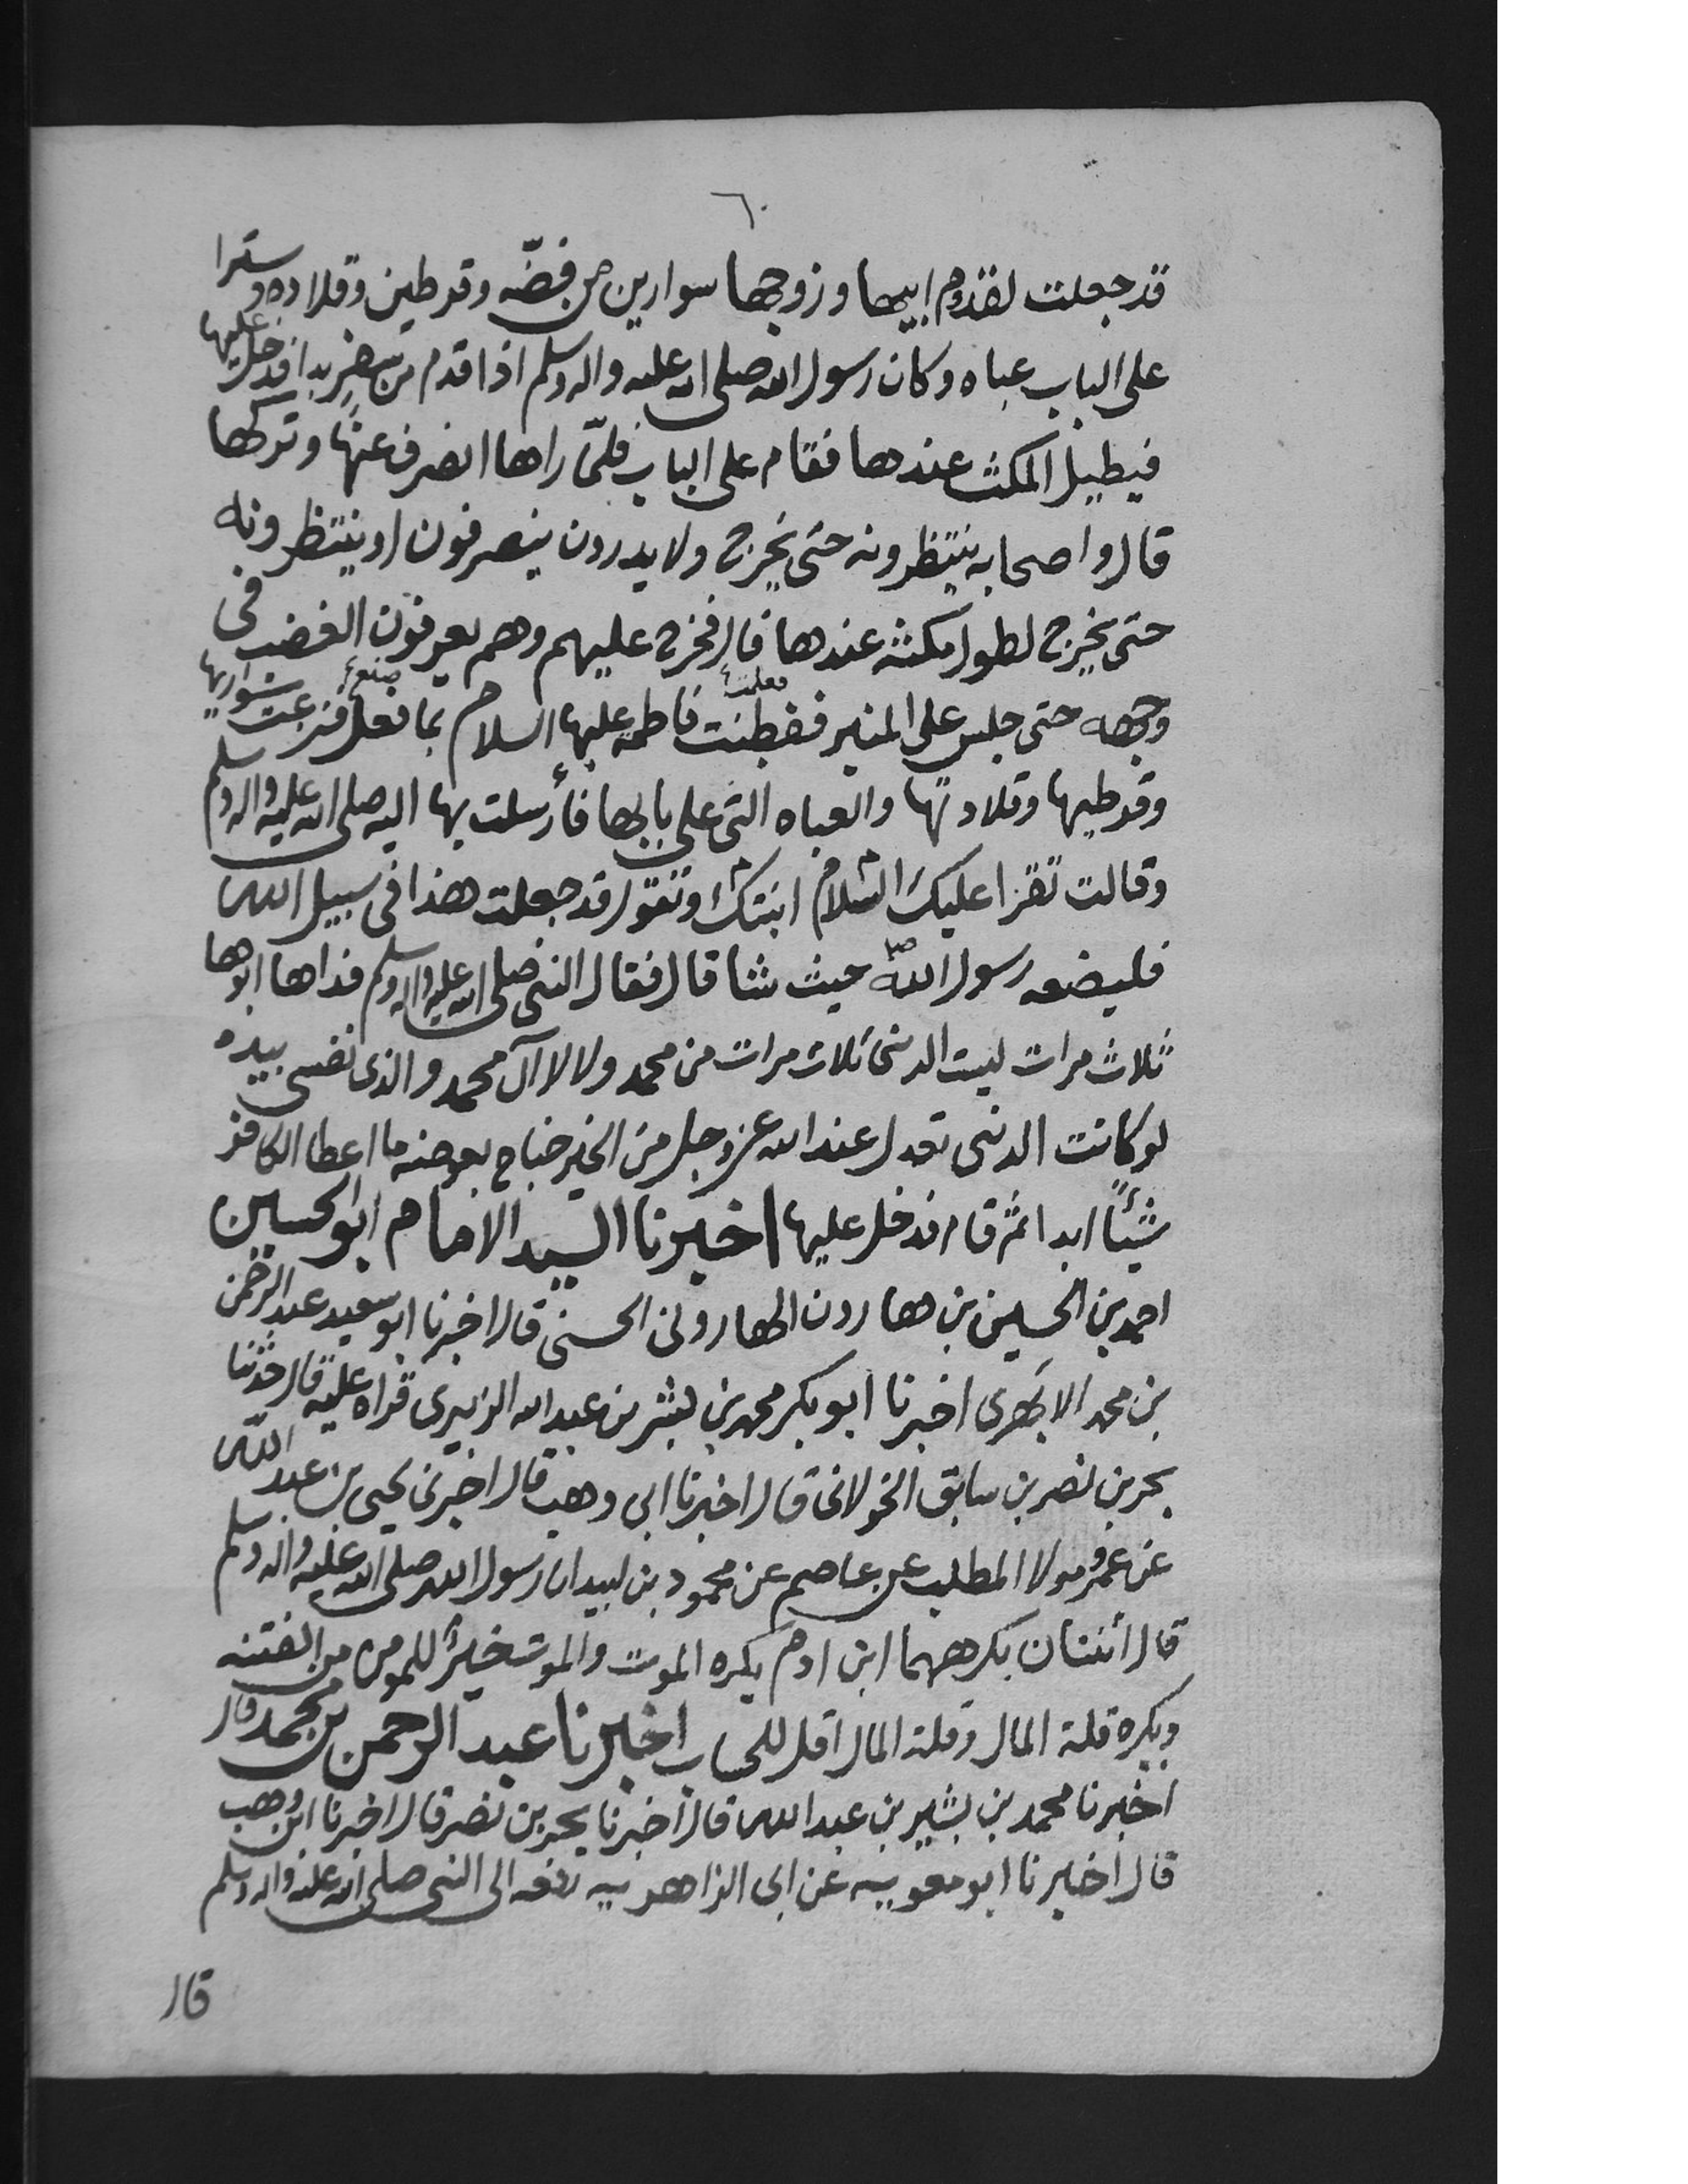 ٦٠
قد جعلت لقدوم ابيها وزوجها سوارين من فضّه وقرطين وقلاده وسترا
على الباب عباه وكان رسول الله صلى الله عليه واله وسلم اذا قدم من سفر بدا فدخل عليها
فيطيل المكث عندها فقام على الباب فلمّا راها انصرف عنها وتركها
قال واصحابه ينتظرونه حتى يخرج ولا يدرون ينصرفون او ينتظرونه
حتى يخرج لطول مكثه عندها قال فخرج عليهم وهم يعرفون الغضب فى
وجهه حتى جلس على المنبر ففطنت فاطمه عليها السلام بما فعل فنزعت سواريها
فعلمت صنع
وقرطيها وقلادتها والعباه التى على بابها فأرسلت بها اليه صلى الله عليه واله وسلم
وقالت تقرا عليك السّلام ابنتك وتقول قد جعلت هذا فى سبيل الله
فليضعه رسول الله ص حيث شا قال فقال النبى صلى الله عليه واله وسلم فداها ابوها
ثلاث مرات ليت الدنى ثلاث مرات من محمد ولا لاآل محمد والذى نفسى بيده
لو كانت الدنى تعدل عند الله عز وجل من الخير جناح بعوضه ما اعطا الكافر
شيئًا ابدا ثم قام فدخل عليها اخبرنا السيد الامام ابو الحسين
احمد بن الحسين بن هارون الهارونى الحسنى قال اخبرنا ابو سعيد عبد الرحمن
بن محمد الابهرى اخبرنا ابو بكر محمد بن بشر بن عبد الله الزبيرى قراه عليه قال حدّثنا
بحر بن نصر بن سابق الخولانى قال اخبرنا ابى وهب قال اخبرنى يحيى بن عبد الله
عن عمرو مولا المطلب عن عاصم عن محمود بن لبيد ان رسول الله صلى الله عليه واله وسلم
قال اثنتان يكرههما ابن ادم يكره الموت والموت خيرٌ للمومن من الفتنه
ويكره قلة المال وقلة المال اقل للحساب اخبرنا عبد الرحمن بن محمد قال
اخبرنا محمد بن بشير بن عبد الله قال اخبرنا بحر بن نصر قال اخبرنا ابن وهب
قال اخبرنا ابو معويه عن ابى الزاهريه رفعه الى النبى صلى الله عليه واله وسلم
قال